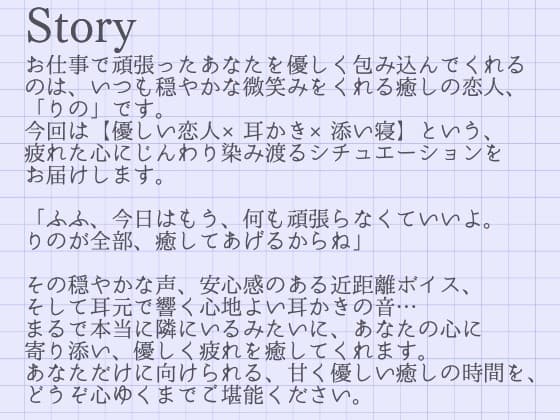 Story
お仕事で頑張ったあなたを優しく包み込んでくれる
のは、いつも穏やかな微笑みをくれる癒しの恋人、
「りの」です。
今回は【優しい恋人×耳かき×添い寝】という、
疲れた心にじんわり染み渡るシチュエーションを
お届けします。
「ふふ、今日はもう、何も頑張らなくていいよ。
りのが全部、癒してあげるからね」
その穏やかな声、安心感のある近距離ボイス、
そして耳元で響く心地よい耳かきの音…
まるで本当に隣にいるみたいに、あなたの心に
寄り添い、優しく疲れを癒してくれます。
あなただけに向けられる、甘く優しい癒しの時間を、
どうぞ心ゆくまでご堪能ください。